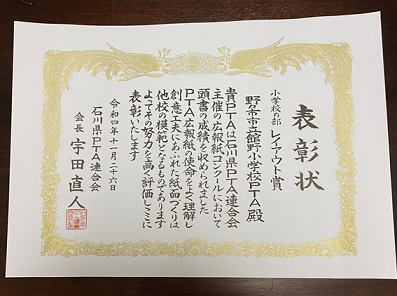 表彰状
小学校の部 レイアウト賞
野々市市立館野小学校PTA殿
貴PTAは石川県PTA連合会
主催の広報紙コンクールにおいて
頭書の成績を収められました
PTA広報紙の使命をよく理解し
創意工夫にあふれた紙面づくりは
他校の模範となるものであります
よってその努力を高く評価しここに
表彰いたします
令和四年十一月二十六日
石川県PTA連合会
会長 宇田直人